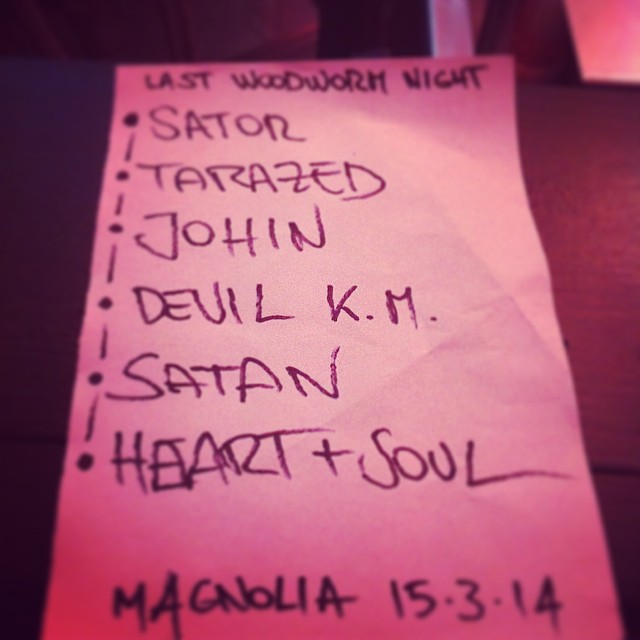 LAST WOODWORM NIGHT
• SATOR
• TARAZED
• JOHIN
• DEVIL K.M.
• SATAN
• HEART + SOUL
MAGNOLIA 15.3.14